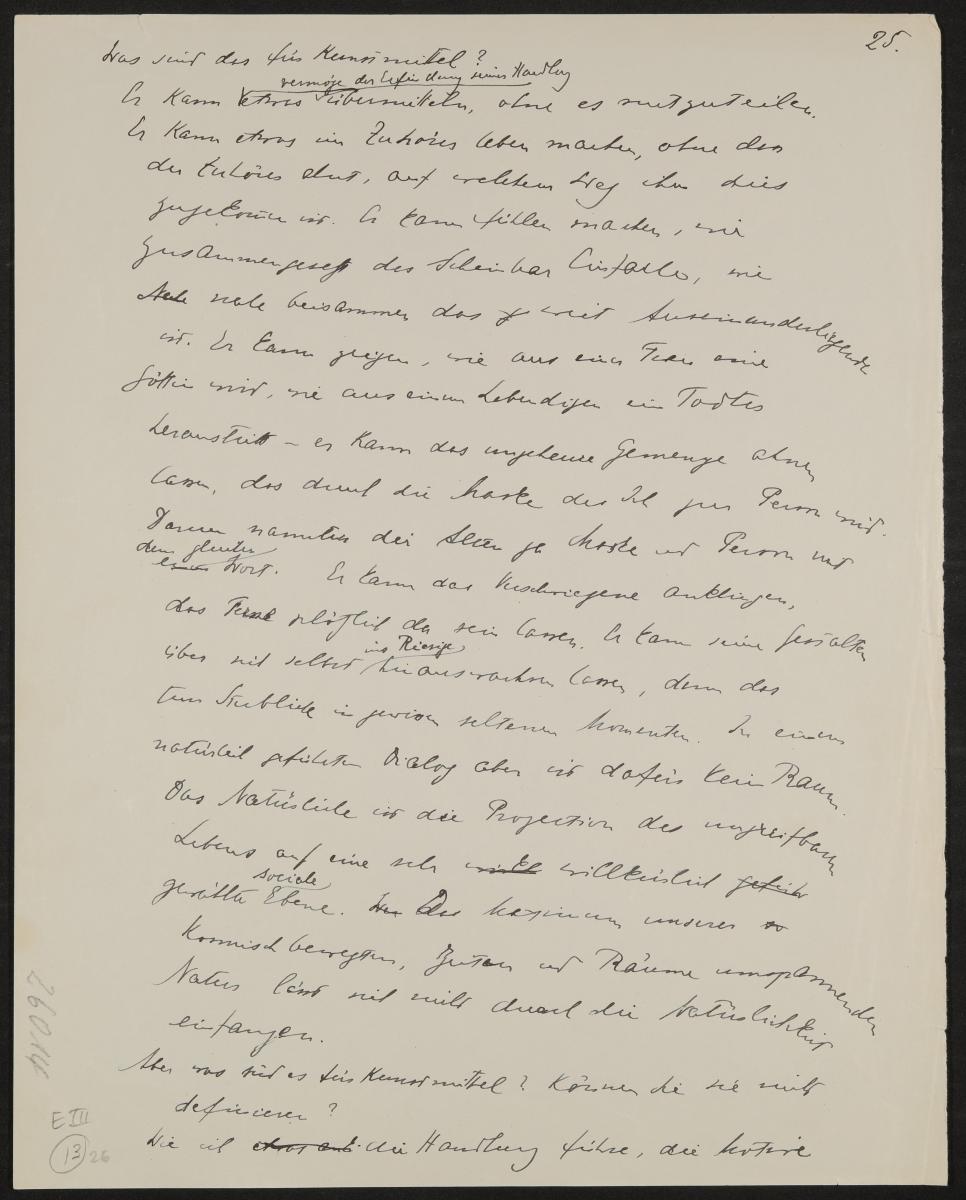 25.
Was sind das für Kunstmittel?
vermöge der Erfindung seiner Handlung
Er kann etwas übermitteln, ohne es mitzuteilen.
Er kann etwas im Zuhörer leben machen, ohne dass
der Zuhörer ahnt, auf welchem Weg ihm dies
zugekommen ist. Er kann fühlen machen, wie
zusammengesetzt das scheinbar Einfache, wie
Nahe nahe beisammen das weit Auseinanderliegende
ist. Er kann zeigen, wie aus einer Frau eine
Göttin wird, wie aus einem Lebendigen ein Todtes
heraustritt – er kann das ungeheure Gemenge ahnen
lassen, das durch die Maske des Ich zur Person wird.
Darum nannten die Alten ja Maske und Person mit
dem gleichen
einem Wort. Er kann das Verschwiegene anklingen,
das Ferne plötzlich da sein lassen. Er kann seine Gestalten
ins Riesige
über sich selbst hinauswachsen lassen, denn das
tun Sterbliche in gewissen seltenen Momenten. In einem
natürlich geführten Dialog aber ist dafür kein Raum.
Das Natürliche ist die Projection des ungreifbaren
Lebens auf eine sehr willkürlich
sociale
gewählte Ebene. Das Maximum unserer
kosmisch bewegten, Zeiten und Räume umspannenden
Natur lässt sich nicht durch die Natürlichkeit
einfangen.
Aber was sind es für Kunstmittel? Können Sie sie nicht
definieren?
Wie ich etwas die Handlung führe, die Motive
26014
E III
13 26